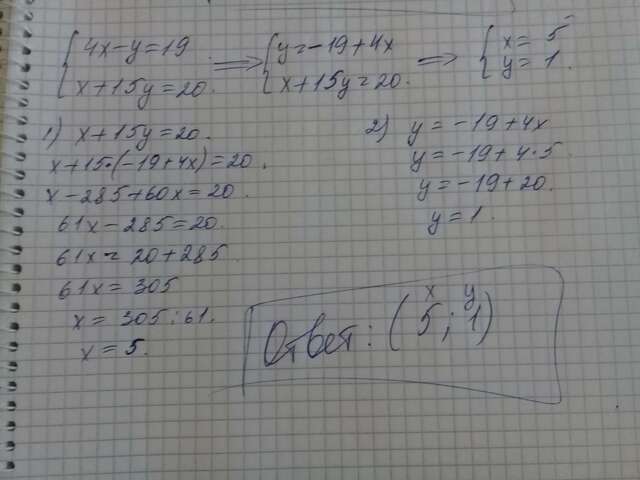 { 4x-y=19 => { y=-19+4x => { x= 5
x+15y=20. x+15y=20. y= 1.
1) x+15y=20.
x+15·(-19+4x)=20.
x-285+60x=20.
61x-285=20.
61x= 20+285.
61x= 305
x= 305:61.
x= 5.
2) y= -19+4x
y= -19+4·5
y= -19+20.
y= 1.
x y
Ответ: (5; 1)